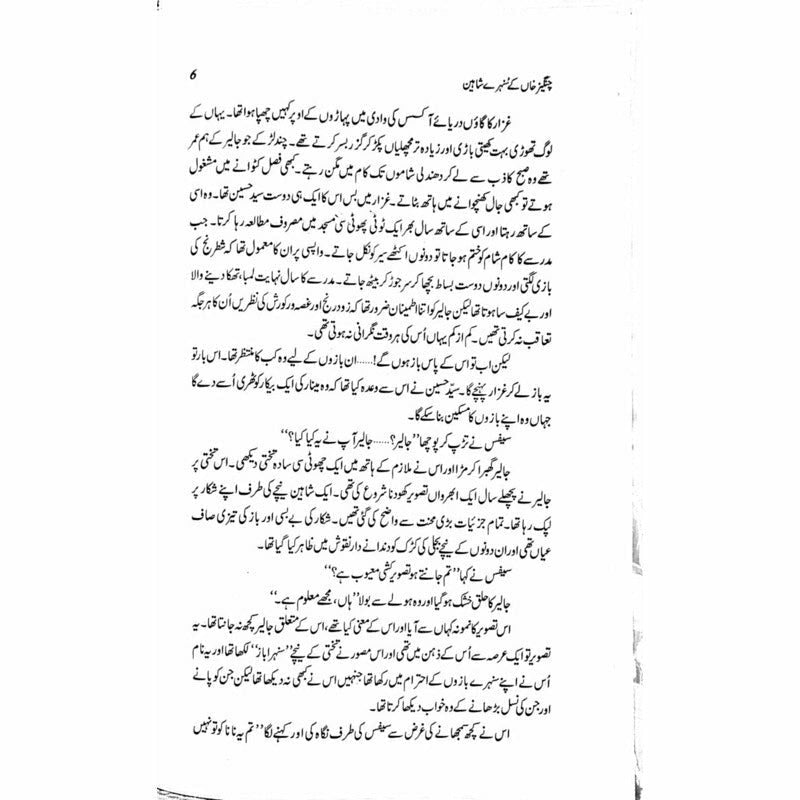 چنگیز خاں کے سنہرے شاہین
6
غزار کا گاؤں دریائے آکسس کی وادی میں پہاڑوں کے اوپر کہیں چھپا ہوا تھا۔ یہاں کے
لوگ تھوڑی بہت کھیتی باڑی اور زیادہ تر مچھلیاں پکڑ کر گزر بسر کرتے تھے۔ چند لڑکے جو جالیر کے ہم عمر
تھے وہ صبح کاذب سے لے کر دھندلی شاموں تک کام میں مگن رہتے۔ کبھی فصل کٹوانے میں مشغول
ہوتے تو کبھی جال کھنچوانے میں ہاتھ بٹاتے۔ غزار میں بس اس کا ایک ہی دوست سید حسین تھا۔ وہ اسی
کے ساتھ رہتا اور اسی کے ساتھ سال بھر ایک ٹوٹی پھوٹی سی مسجد میں مصروف مطالعہ رہا کرتا۔ جب
مدرسے کا کام شام کو ختم ہو جاتا تو دونوں اکٹھے سیر کو نکل جاتے۔ واپسی پر ان کا معمول تھا کہ شطرنج کی
بازی لگتی اور دونوں دوست بساط بچھا کر سر جوڑ کر بیٹھ جاتے۔ مدرسے کا سال نہایت لمبا، تھکا دینے والا
اور بے کیف سا ہوتا تھا لیکن جالیر کو اتنا اطمینان ضرور تھا کہ زود رنج اور غصہ ور کورش کی نظریں اُن کا ہر جگہ
تعاقب نہ کرتی تھیں۔ کم از کم یہاں اُس کی ہر وقت نگرانی نہ ہوتی تھی۔
لیکن اب تو اس کے پاس باز ہوں گے!......ان بازوں کے لیے وہ کب کا منتظر تھا۔ اس بار تو
یہ باز لے کر غزار پہنچے گا۔ سیّد حسین نے اس سے وعدہ کیا تھا کہ وہ مینار کی ایک بیکار کوٹھری اُسے دے گا
جہاں وہ اپنے بازوں کا مسکین بنا سکے گا۔
سیفس نے تڑپ کر پوچھا ”جالیر؟......جالیر آپ نے یہ کیا کیا؟“
جالیر گھبرا کر مڑا اور اس نے ملازم کے ہاتھ میں ایک چھوٹی سی سادہ تختی دیکھی۔ اس تختی پر
جالیر نے پچھلے سال ایک ابھرواں تصویر کھودنا شروع کی تھی۔ ایک شاہین نیچے کی طرف اپنے شکار پر
لپک رہا تھا۔ تمام جزئیات بڑی محنت سے واضح کی گئی تھیں۔ شکار کی بے بسی اور باز کی تیزی صاف
عیاں تھی اور ان دونوں کے نیچے بجلی کی کڑک کو دندانے دار نقوش میں ظاہر کیا گیا تھا۔
سیفس نے کہا ”تم جانتے ہو تصویر کشی معیوب ہے؟“
جالیر کا حلق خشک ہو گیا اور وہ ہولے سے بولا ”ہاں، مجھے معلوم ہے۔“
اس تصویر کا نمونہ کہاں سے آیا اور اس کے معنی کیا تھے، اس کے متعلق جالیر کچھ نہ جانتا تھا۔ یہ
تصویر تو ایک عرصہ سے اُس کے ذہن میں تھی اور اس مصور نے تختی کے نیچے ”سنہرا باز“ لکھا تھا اور یہ نام
اُس نے اپنے سنہرے بازوں کے احترام میں رکھا تھا جنہیں اس نے کبھی نہ دیکھا تھا لیکن جن کو پانے
اور جن کی نسل بڑھانے کے وہ خواب دیکھا کرتا تھا۔
اس نے کچھ سمجھانے کی غرض سے سیفس کی طرف نگاہ کی اور کہنے لگا ”تم یہ نانا کو تو نہیں